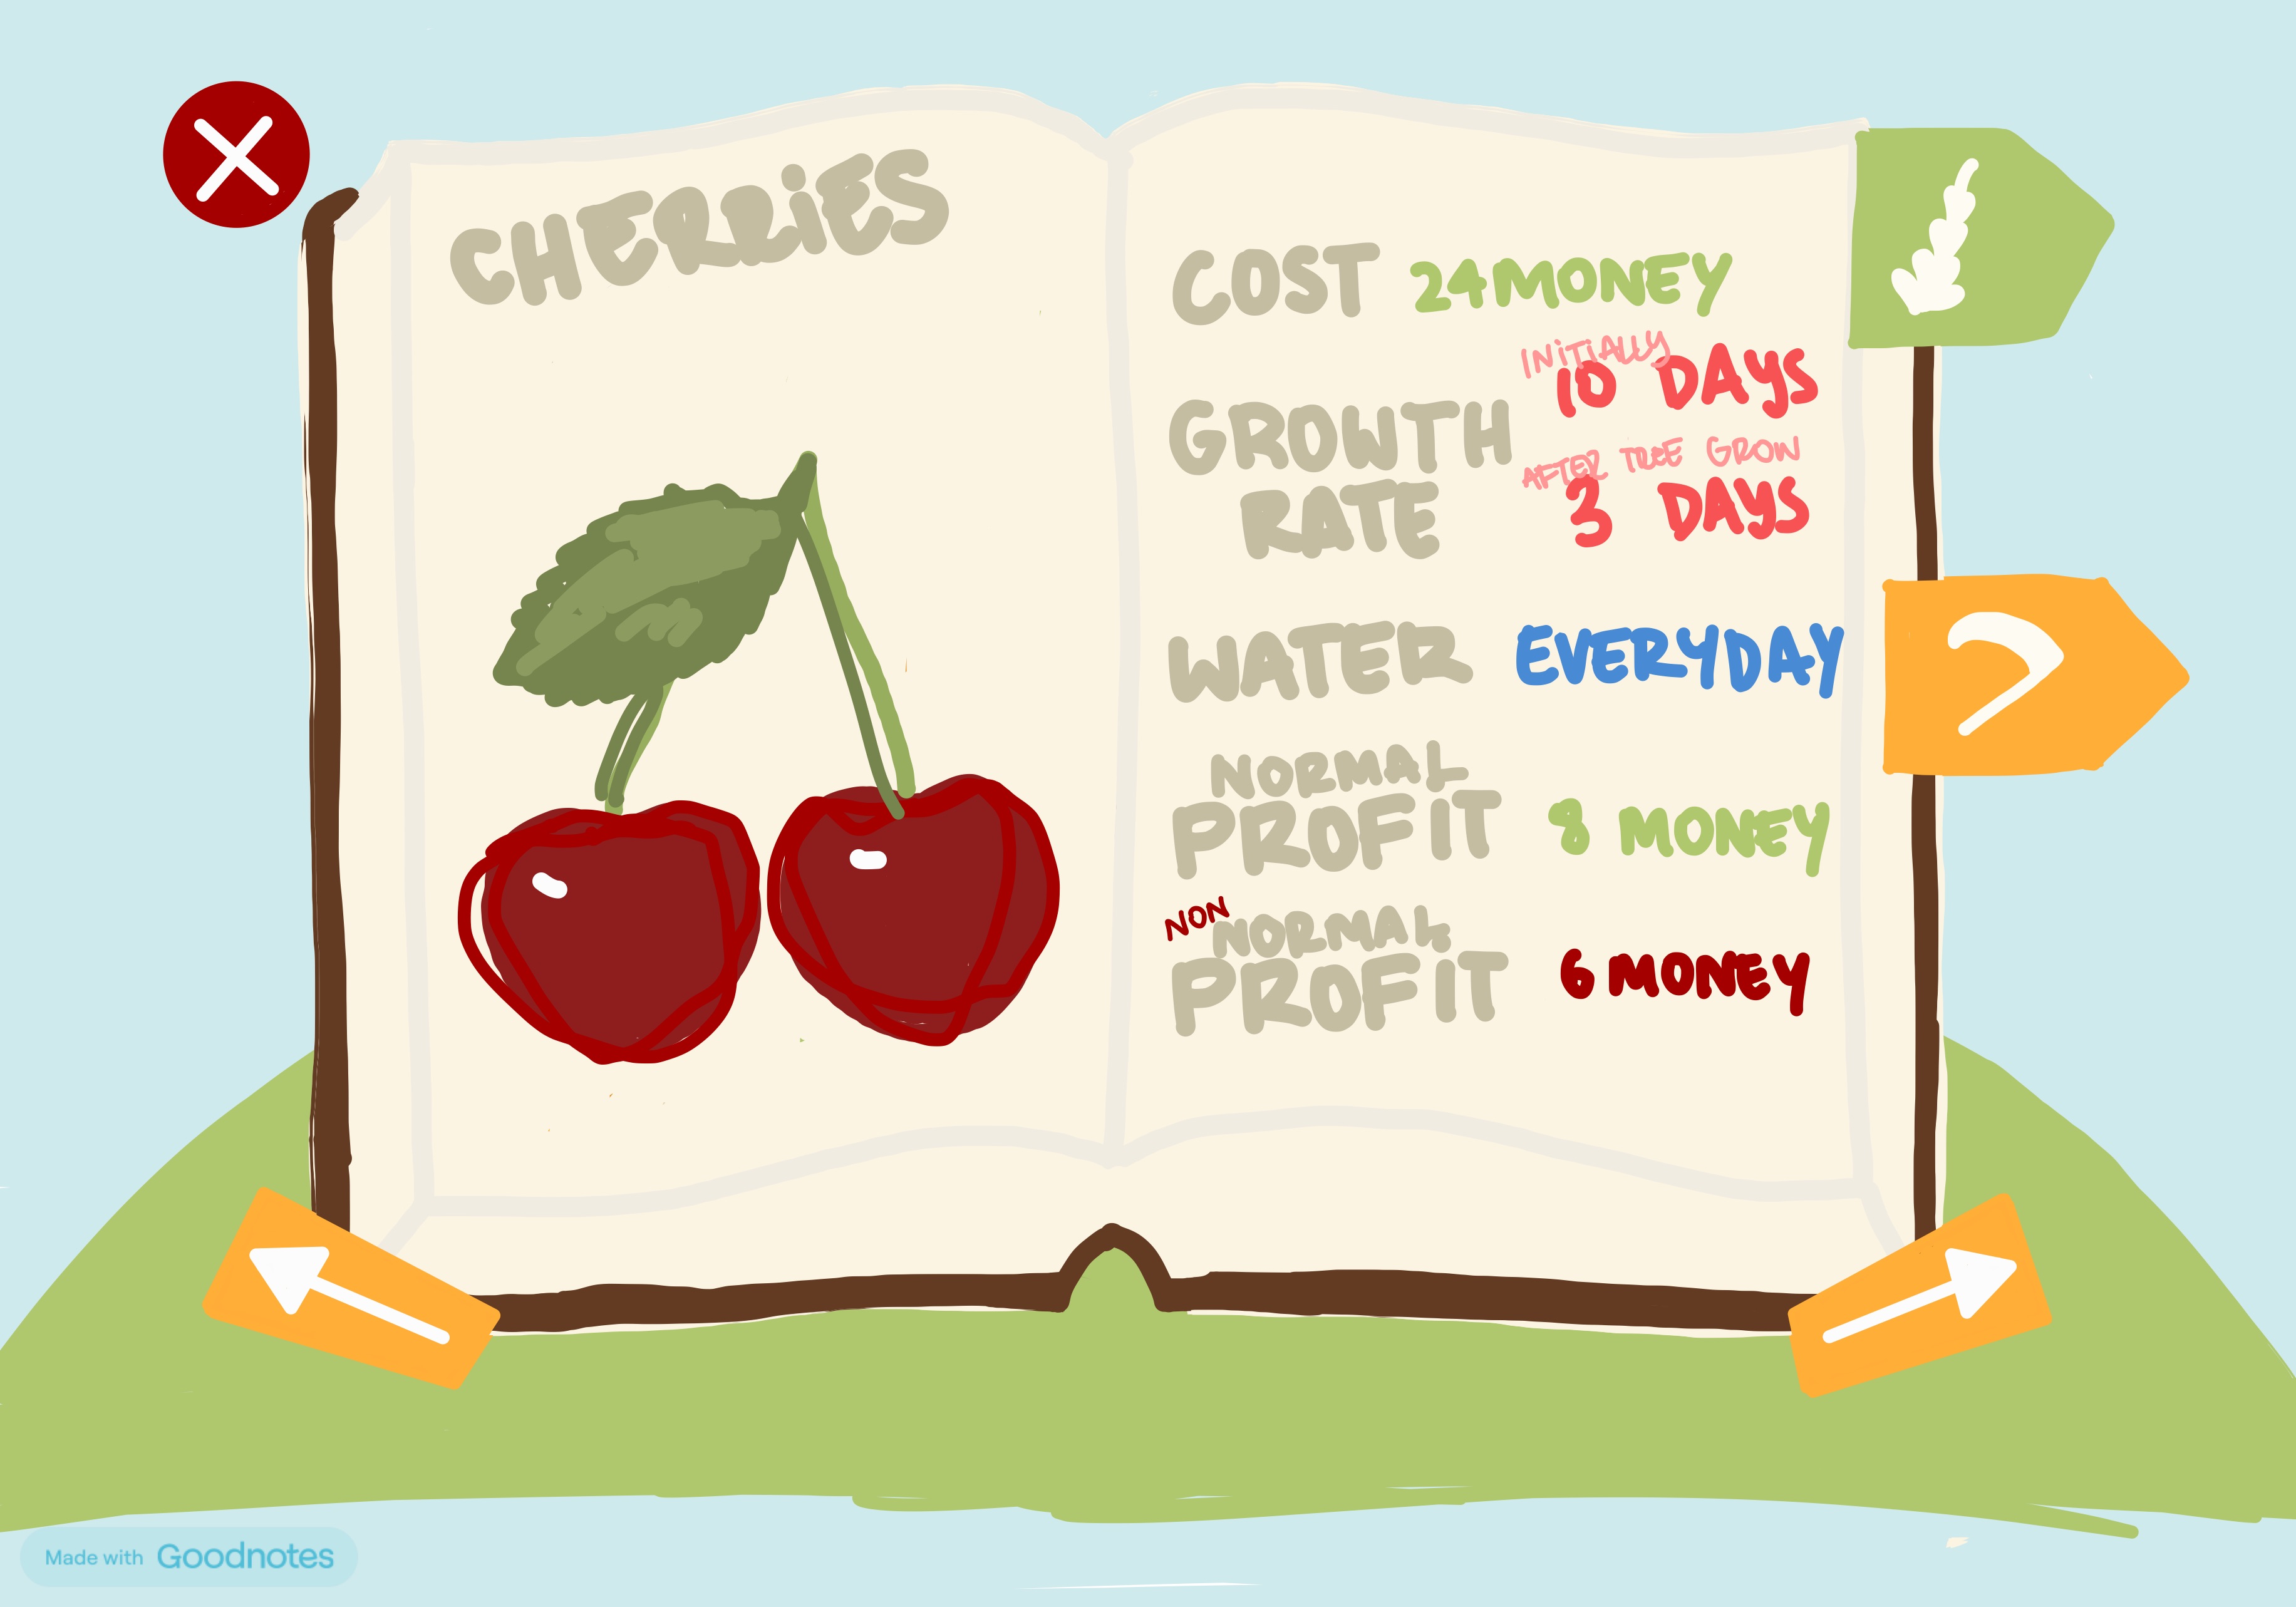 CHERRiES
COST 24 MONEY
INiTiALLY
10 DAYS
GROWTH
RATE
AFTER TREE GROW
3 DAYS
WATER EVERYDAY
NORMAL
PROFIT 8 MONEY
NON NORMAL
PROFIT 6 MONEY
Made with Goodnotes